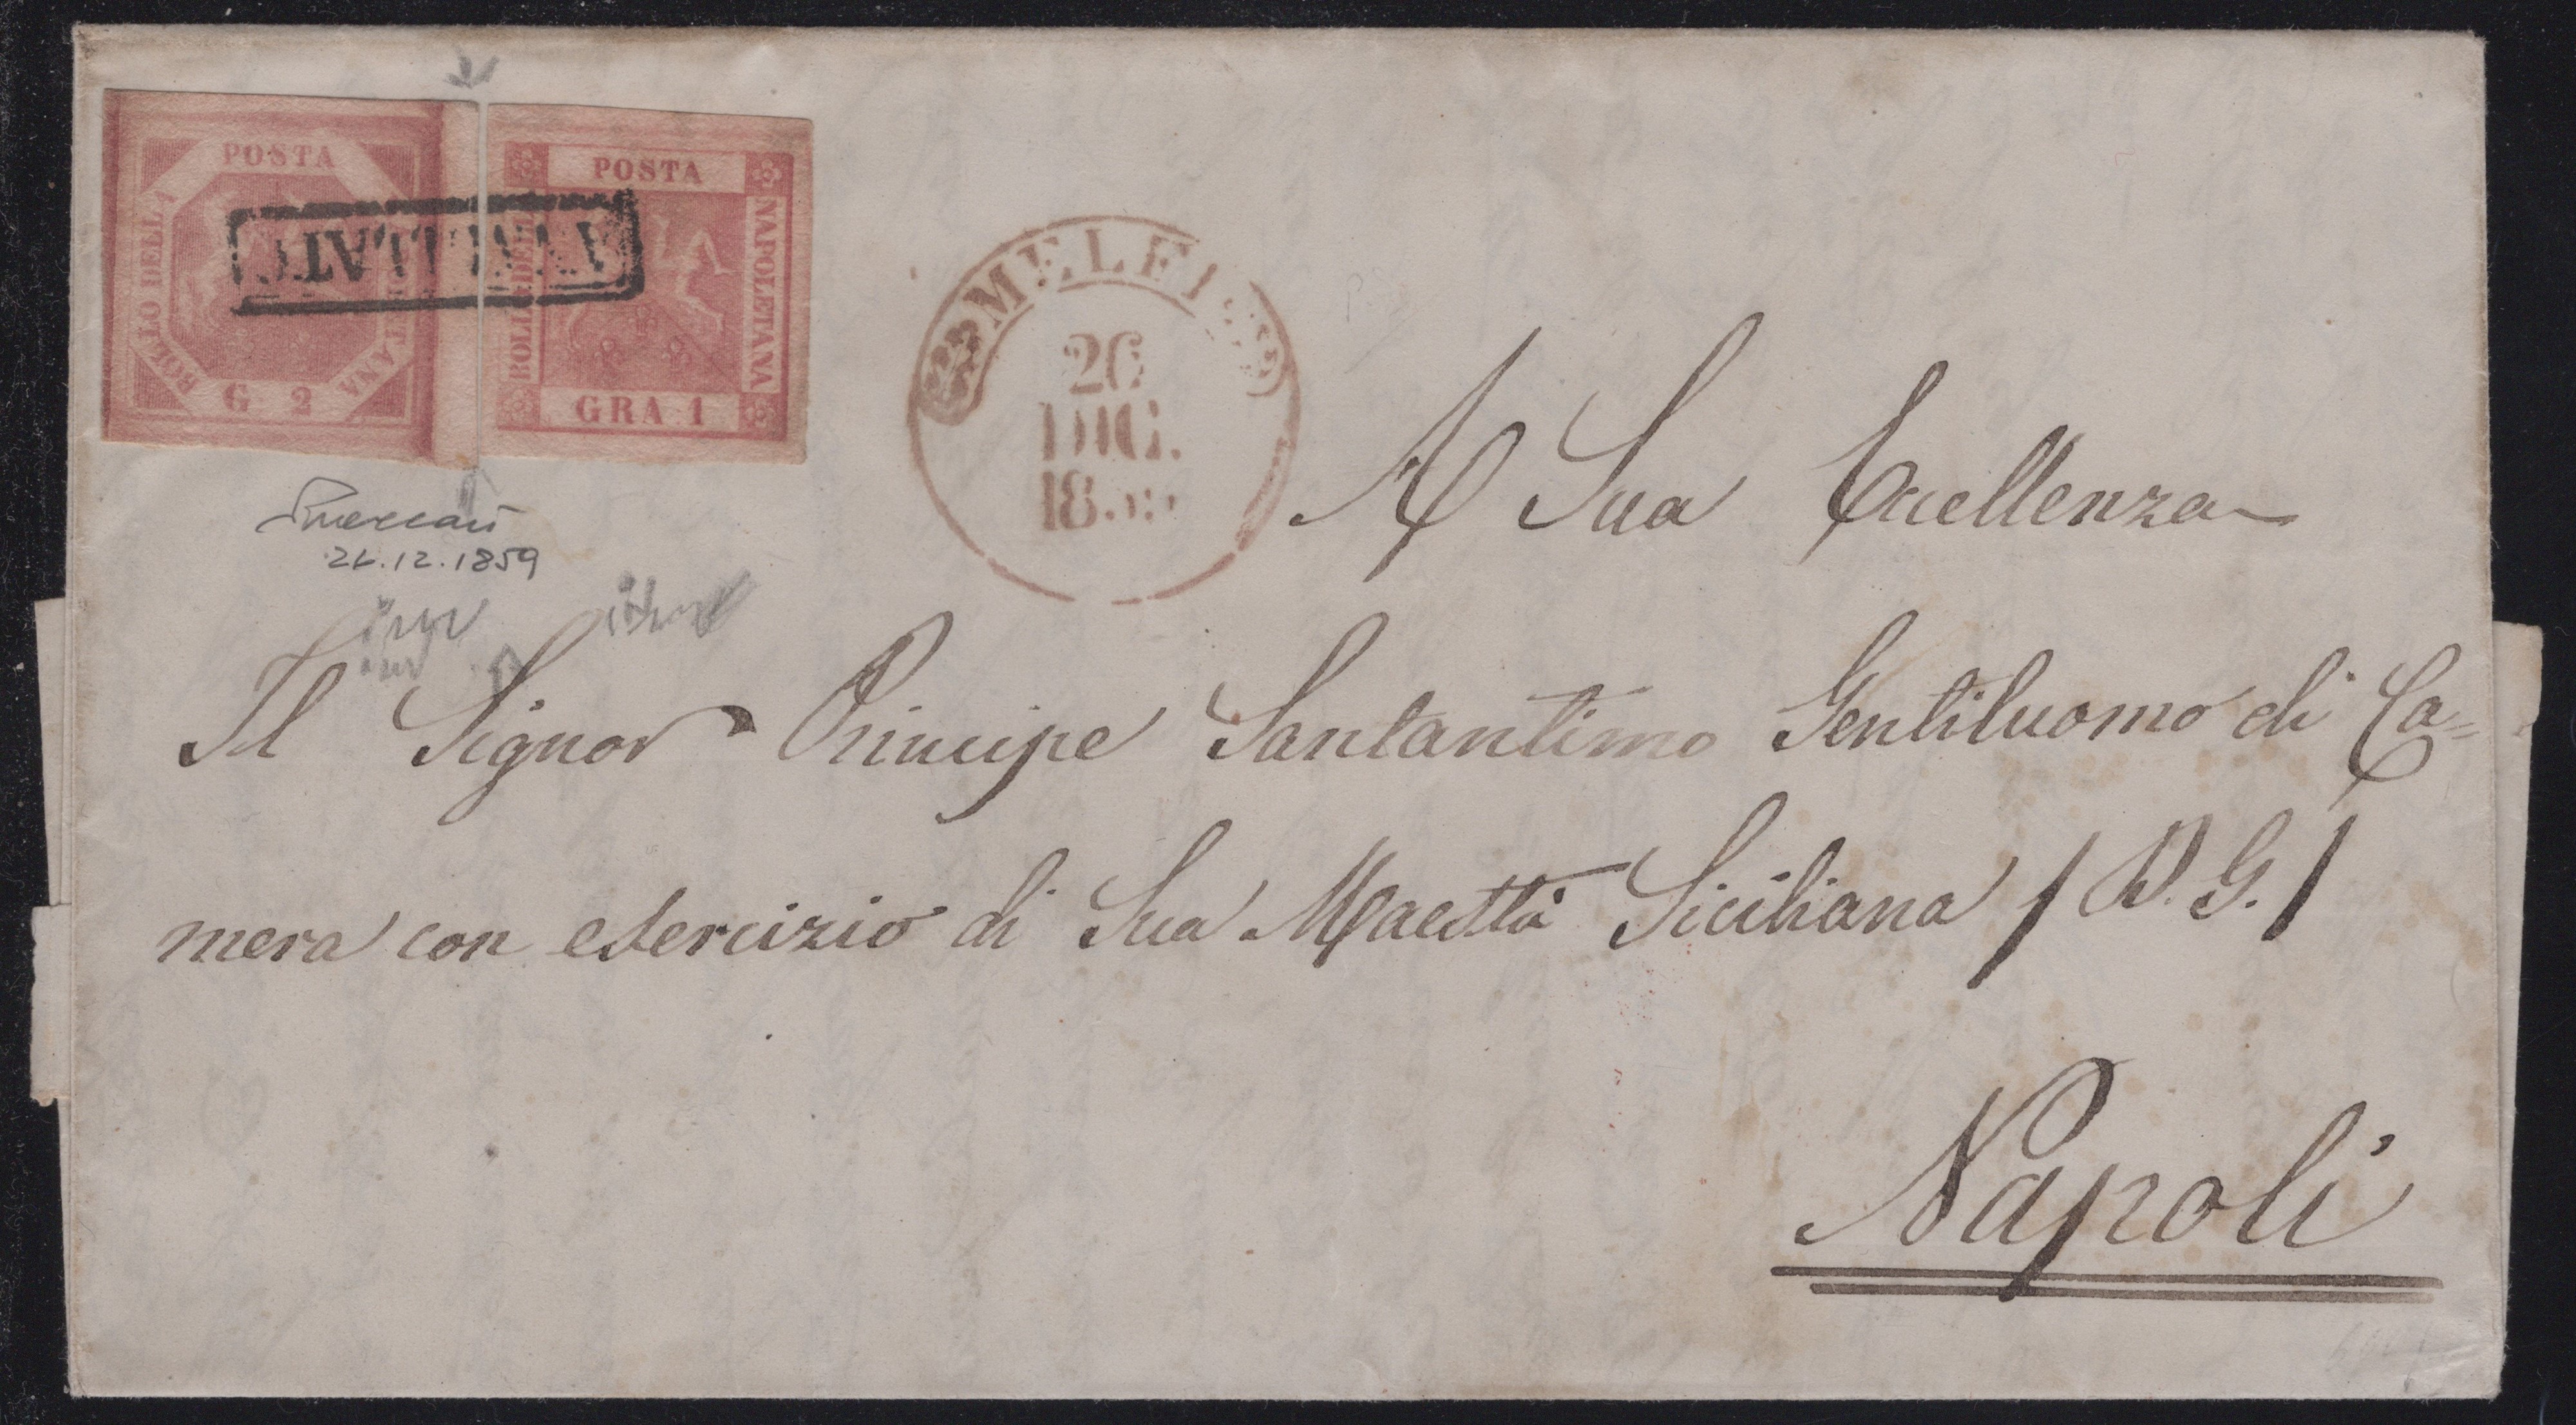 POSTA
BOLLO DELLA
G 2
POSTA
BOLLO DELLA
NAPOLETANA
GRA 1
ANNULLATO
MELFI
26
DIC.
18
26.12.1859
A Sua Eccellenza
Il Signor Principe Santantimo Gentiluomo di Ca=
mera con esercizio di Sua Maestà Siciliana / D. G. /
Napoli